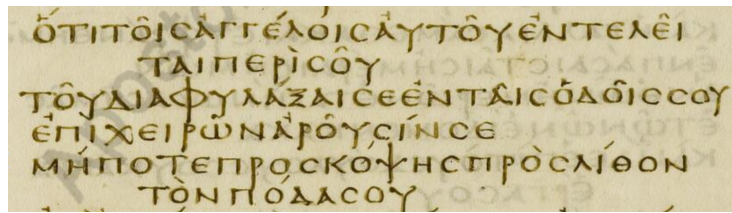 ὍΤΙΤΟῖϹἈΓΓΈΛΟΙϹΑΥΤΟῦἘΝΤΕΛΕῖ
ΤΑΙΠΕΡῚϹΟῦ
ΤΟῦΔΙΑΦΥΛΆΞΑΙϹΕἘΝΤΑῖϹὉΔΟῖϹϹΟΥ
ἘΠΙΧΕΙΡῶΝἈΡΟῦϹΊΝϹΕ
ΜΉΠΟΤΕΠΡΟϹΚΌΨΗϹΠΡῸϹΛΊΘΟΝ
ΤῸΝΠΌΔΑϹΟΥ